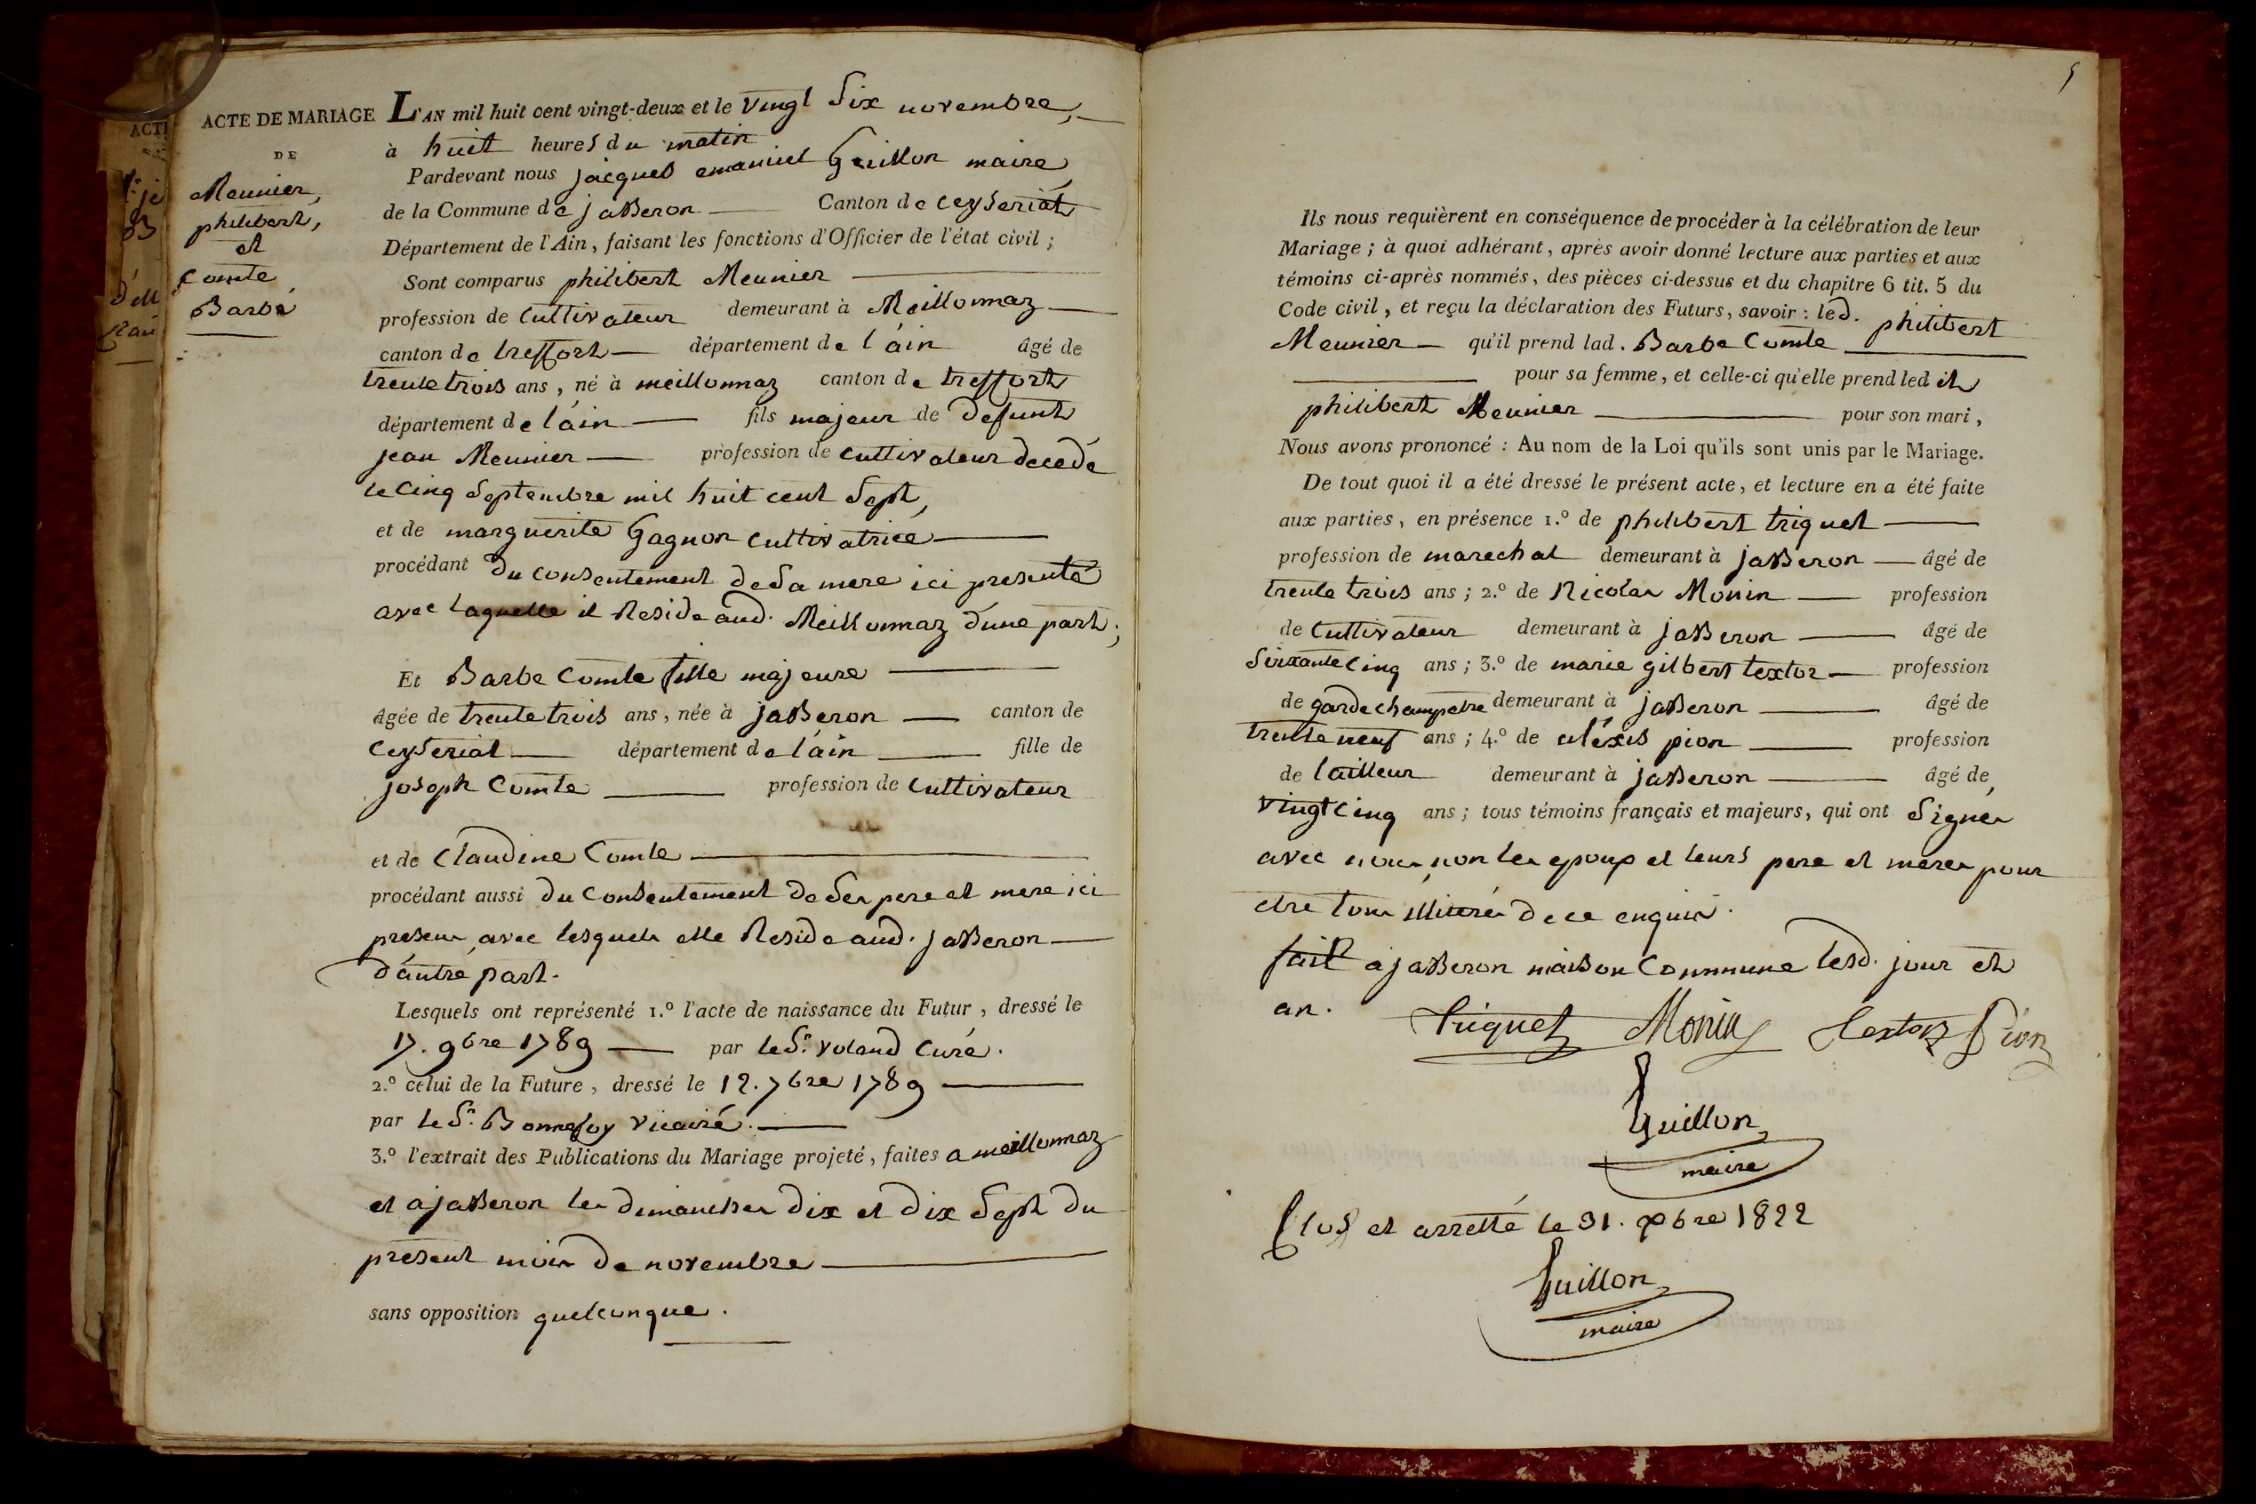 ACTE DE MARIAGE
DE
Meunier,
philibert,
et
Comte
Barbe
L'AN mil huit cent vingt-deux et le vingt Six novembre,
à huit heures du matin
Pardevant nous jacques emanuel Guillon maire
de la Commune de jasseron Canton de ceyseriat
Département de l'Ain, faisant les fonctions d'Officier de l'état civil ;
Sont comparus philibert Meunier
profession de Cultivateur demeurant à Meillonnaz
canton de treffort département de l'ain âgé de
trente trois ans, né à meillonnaz canton de treffort
département de l'ain fils majeur de defunt
jean Meunier profession de cultivateur decedé
le Cinq Septembre mil huit cent Sept,
et de marguerite Gagnon cultivatrice
procédant du consentement de Sa mere ici presente
avec laquelle il Reside aud. Meillonnaz d'une part ;
Et Barbe Comte fille majeure
âgée de trente trois ans, née à jasseron canton de
Ceyseriat département de l'ain fille de
joseph Comte profession de Cultivateur
et de Claudine Comte
procédant aussi du Consentement de Ses pere et mere ici
presens avec lesquels elle Reside aud. jasseron
d'autre part.
Lesquels ont représenté 1.º l'acte de naissance du Futur, dressé le
17. 9bre 1789 par le Sr. voland Curé.
2.º celui de la Future, dressé le 12. 7bre 1789
par le Sr. Bonnefoy Vicaire.
3.º l'extrait des Publications du Mariage projeté, faites a meillonnaz
et a jasseron les dimanches dix et dix Sept du
present mois de novembre
sans opposition quelconque.
5
Ils nous requièrent en conséquence de procéder à la célébration de leur
Mariage ; à quoi adhérant, après avoir donné lecture aux parties et aux
témoins ci-après nommés, des pièces ci-dessus et du chapitre 6 tit. 5 du
Code civil, et reçu la déclaration des Futurs, savoir : led. philibert
Meunier qu'il prend lad. Barbe Comte
pour sa femme, et celle-ci qu'elle prend led it
philibert Meunier pour son mari,
Nous avons prononcé : Au nom de la Loi qu'ils sont unis par le Mariage.
De tout quoi il a été dressé le présent acte, et lecture en a été faite
aux parties, en présence 1.º de philibert triquet
profession de marechal demeurant à jasseron âgé de
trente trois ans ; 2.º de Nicolas Monin profession
de Cultivateur demeurant à jasseron âgé de
Soixante Cinq ans ; 3.º de marie gilbert textor profession
de garde champetre demeurant à jasseron âgé de
trente neuf ans ; 4.º de aléxis pion profession
de tailleur demeurant à jasseron âgé de
vingt Cinq ans ; tous témoins français et majeurs, qui ont Signés
avec nous, non les epoux et leurs pere et meres pour
etre tous illitérés de ce enquis.
fait a jasseron maison Commune lesd. jour et
an.
triquet Monin textor Pion
Guillon
maire
Clos et arretté le 31. Xbre 1822
Guillon
maire